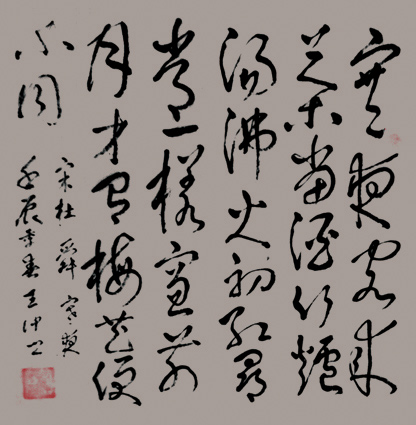 寒夜客来
茶当酒竹炉
汤沸火初红寻
常一样窗前
月才有梅花便
不同
宋杜耒寒夜
壬辰年春